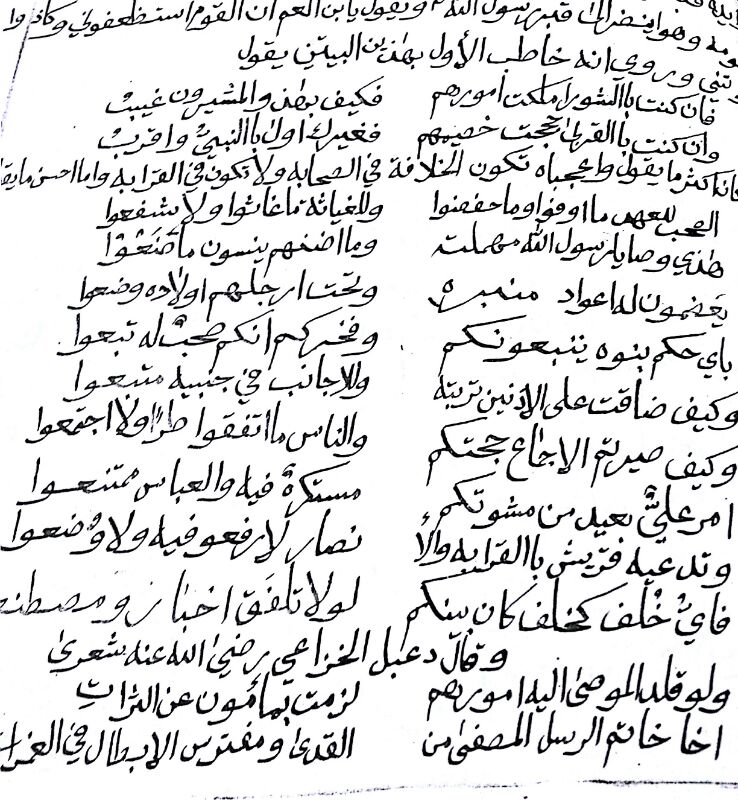 وهو ينضر الى قبر رسول الله ويقول يا ابن العم ان القوم استضعفوني وكادوا
وروي انه خاطب الأول بهذين البيتين يقول
فان كنت باالشورا ملكت امورهم فكيف بهذ والمشيرون غيب
وان كنت باالقربى حججت خصيمهم فغيرك اولى باالنبي واقرب
ما يقول واعجباه تكون الخلافة في الصحابه ولا تكون في القرابه واما احسن ما
الصحب للعهد ما اوفوا وما حفضوا وللغياثة ما غاثوا ولا شفعوا
هذي وصايا رسول الله مهملت وما اضنهم ينسون ما صَنَعُوْا
يعضمون له اعواد منبره وتحت ارجلهم اولاده وضعوا
باي حكم بنوه يتبعونكم وفخركم انكم صحبٌ له تبعوا
وكيف ضاقت على الادنين تربته وللاجانب في جنبيه متسعوا
وكيف صيرتم الاجماع حجتكم والناس ما اتفقوا طرًا ولا اجتمعوا
امر عليٌّ بعيد من مشوتكم مستكرهٌ فيه والعباس ممتنعوا
وتدعيه قريش باالقرابه والأ نصار لا رفعو فيه ولا وُضعوا
فايُّ خُلف كخلف كان بينكم لولا تلفق اخبار ومصطنع
وقال دعبل الخزاعي رضي الله عنه شعرى
ولو قلد الموصى اليه امورهم لزمت بمأمون عن
اخا خاتم الرسل المصفى من القدى ومفترس الابطال في الغمرات